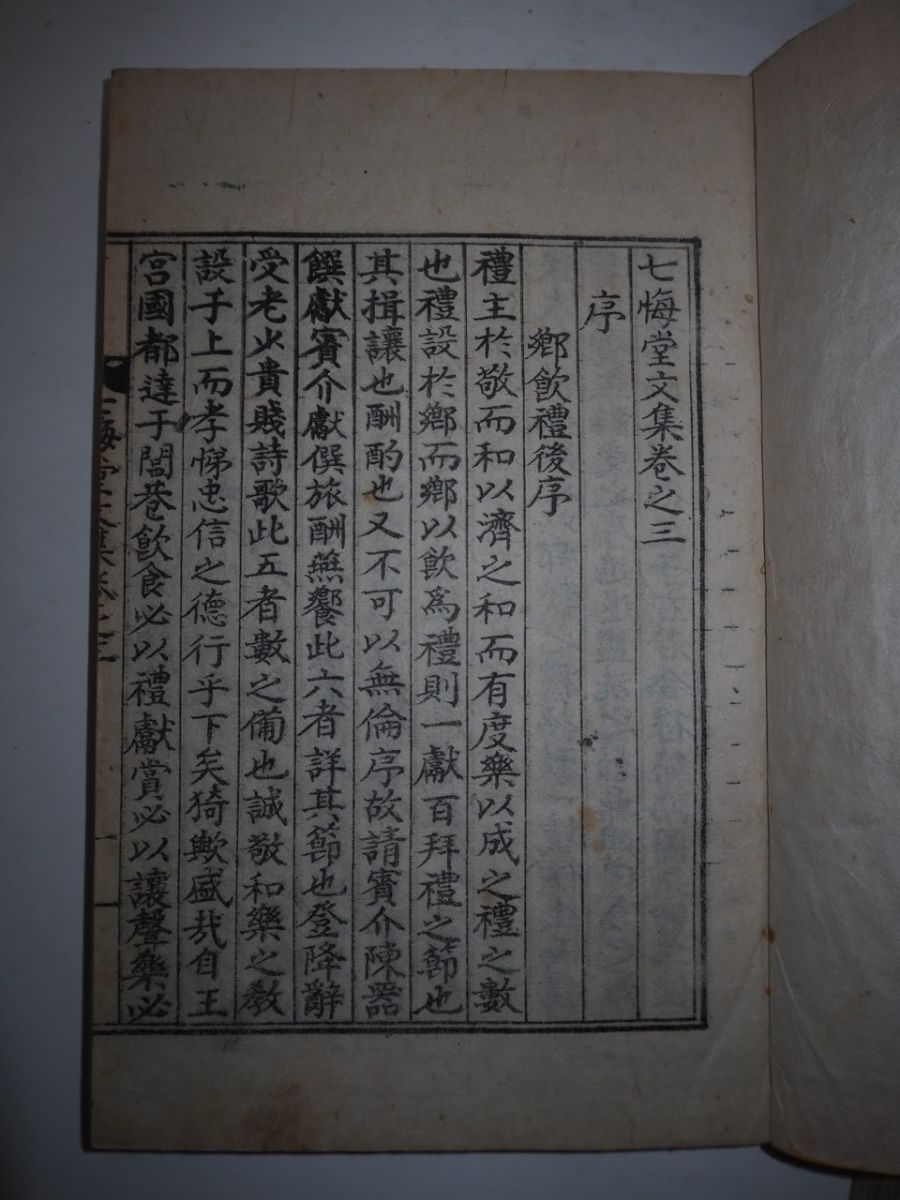 七悔堂文集卷之三
序
鄉飮禮後序
禮主於敬而和以濟之和而有度樂以成之禮之數
也禮設於鄉而鄉以飮爲禮則一獻百拜禮之節也
其揖讓也酬酌也又不可以無倫序故請賓介陳器
饌獻賓介獻僎旅酬無饗此六者詳其節也登降辭
受老少貴賤詩歌此五者數之備也誠敬和樂之敎
設于上而孝悌忠信之德行乎下矣猗歟盛哉自王
宮國都達于閭巷飮食必以禮獻賞必以讓聲樂必